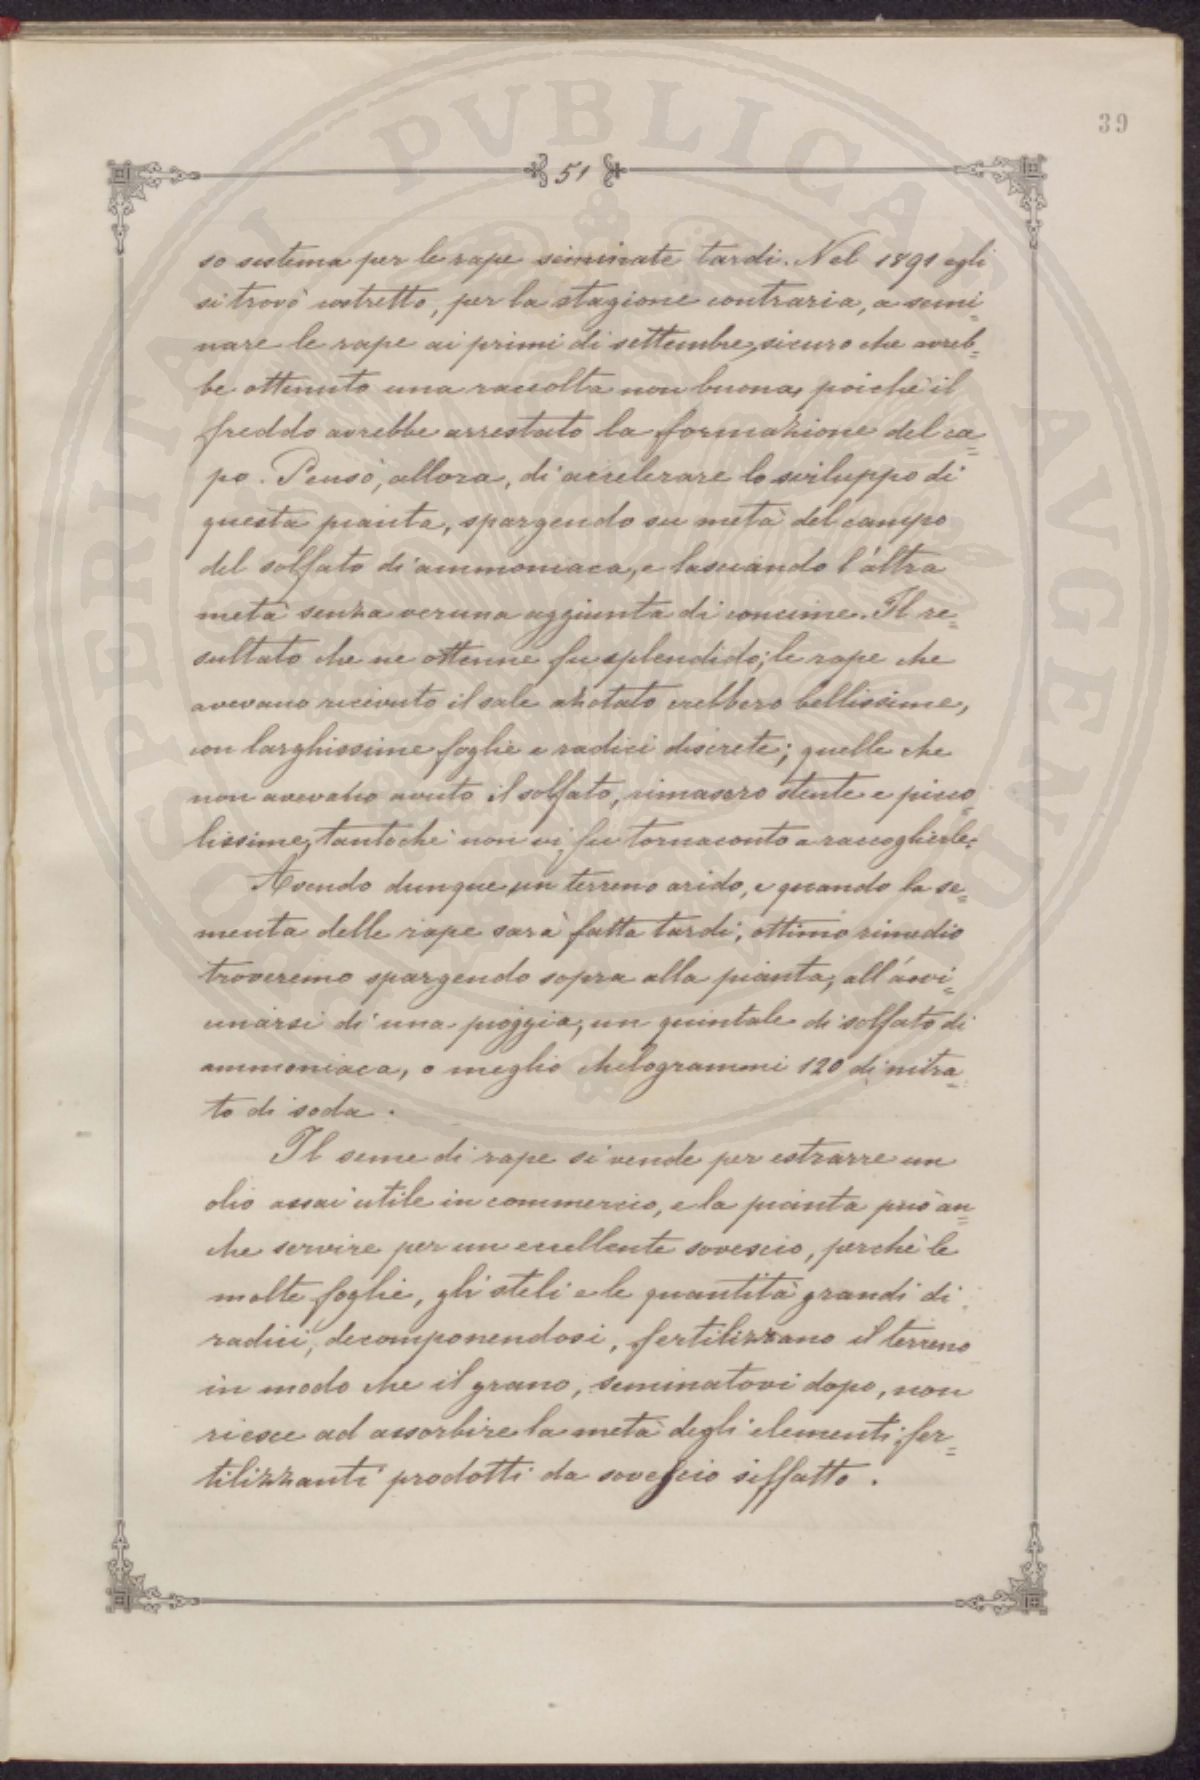 39
51
so sistema per le rape seminate tardi. Nel 1891 egli
si trovò costretto, per la stagione contraria, a semi=
nare le rape ai primi di settembre, sicuro che avreb=
be ottenuto una raccolta non buona, poichè il
freddo avrebbe arrestato la formazione del ca=
po. Pensò, allora, di accelerare lo sviluppo di
questa pianta, spargendo su metà del campo
del solfato di ammoniaca, e lasciando l'altra
metà senza veruna aggiunta di concime. Il re=
sultato che ne ottenne fu splendido; le rape che
avevano ricevuto il sale azotato crebbero bellissime,
con larghissime foglie e radici discrete; quelle che
non avevano avuto il solfato, rimasero stente e picco=
lissime, tantochè non vi fu tornaconto a raccoglierle.
Avendo dunque un terreno arido, e quando la se=
menta delle rape sarà fatta tardi, ottimo rimedio
troveremo spargendo sopra alla pianta, all'avvi=
cinarsi di una pioggia, un quintale di solfato di
ammoniaca, o meglio chilogrammi 120 di nitra=
to di soda.
Il seme di rape si vende per estrarre un
olio assai utile in commercio, e la pianta può an=
che servire per un eccellente sovescio, perchè le
molte foglie, gli steli e le quantità grandi di
radici, decomponendosi, fertilizzano il terreno
in modo che il grano, seminatovi dopo, non
riesce ad assorbire la metà degli elementi fer=
tilizzanti prodotti da sovescio siffatto.
SPERITAN PVBLICAE AVGENDAE